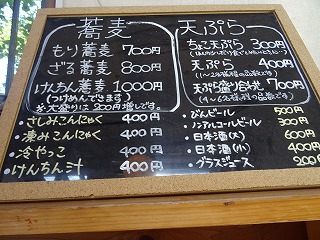 蕎麦
もり蕎麦 700円
ざる蕎麦 800円
けんちん蕎麦 1000円
(つけめんでできます)
※大盛りは200円増しです。
・さしみこんにゃく 400円
・凍みこんにゃく 400円
・冷やっこ 400円
・けんちん汁 400円
天ぷら
ちょこ天ぷら 300円
天ぷら 400円
(1〜2人前程の品数です)
天ぷら盛り合わせ 700円
(4〜6人前程の品数です)
・びんビール 500円
・ノンアルコールビール 300円
・日本酒(大) 600円
・日本酒(小) 400円
・グラスジュース 200円